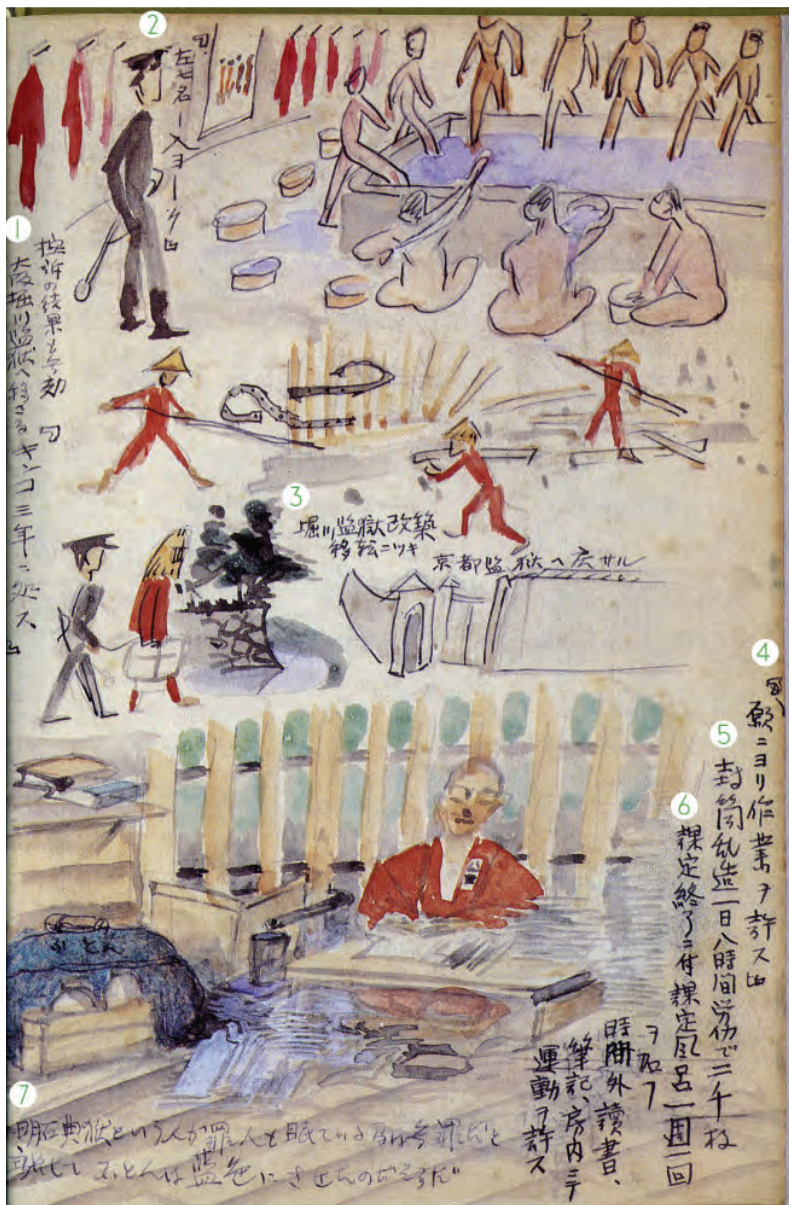 2
1
大阪堀川監獄へ移さる キンコ三年ニ処ス」
3
堀川監獄改築
移転ニツキ
京都監獄へ戻サル
4
願ニヨリ作業ヲ許ス」
5
封筒乱造一日八時間労仂で二千枚
6
課定終了ニ付課定風呂一週一回
時間外讀書、
筆記、房内ニテ
運動ヲ許ス
ふとん
7
明石典獄という人が罪人も眠ている間は無罪だと
ふとんは藍色にさせたのだそうだ